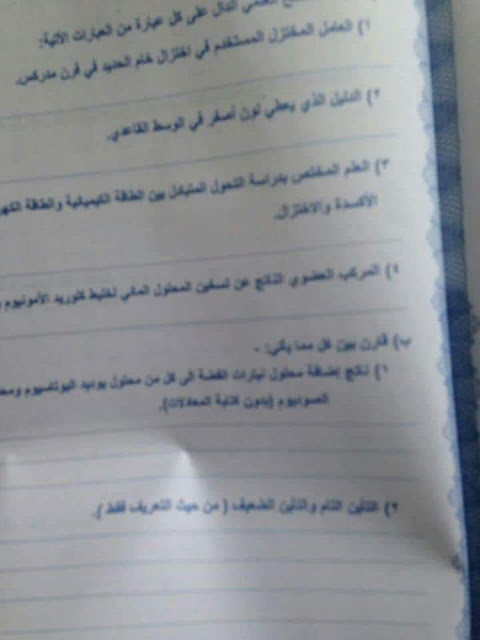 العلمي الدال على كل عبارة من العبارات الآتية:
١) العامل المختزل المستخدم في اختزال خام الحديد في فرن مدركس.
٢) الدليل الذي يعطي لون أصفر في الوسط القاعدي.
٣) العلم المختص بدراسة التحول المتبادل بين الطاقة الكيميائية والطاقة الكهر
الأكسدة والاختزال.
٤) المركب العضوي الناتج عن تسخين المحلول المائي لخليط كلوريد الأمونيوم
ب) قارن بين كل مما يأتي: -
١) ناتج إضافة محلول نيترات الفضة الى كل من محلول يوديد البوتاسيوم ومحل
الصوديوم (بدون كتابة المعادلات).
٢) التأين التام والتأين الضعيف ( من حيث التعريف فقط ).